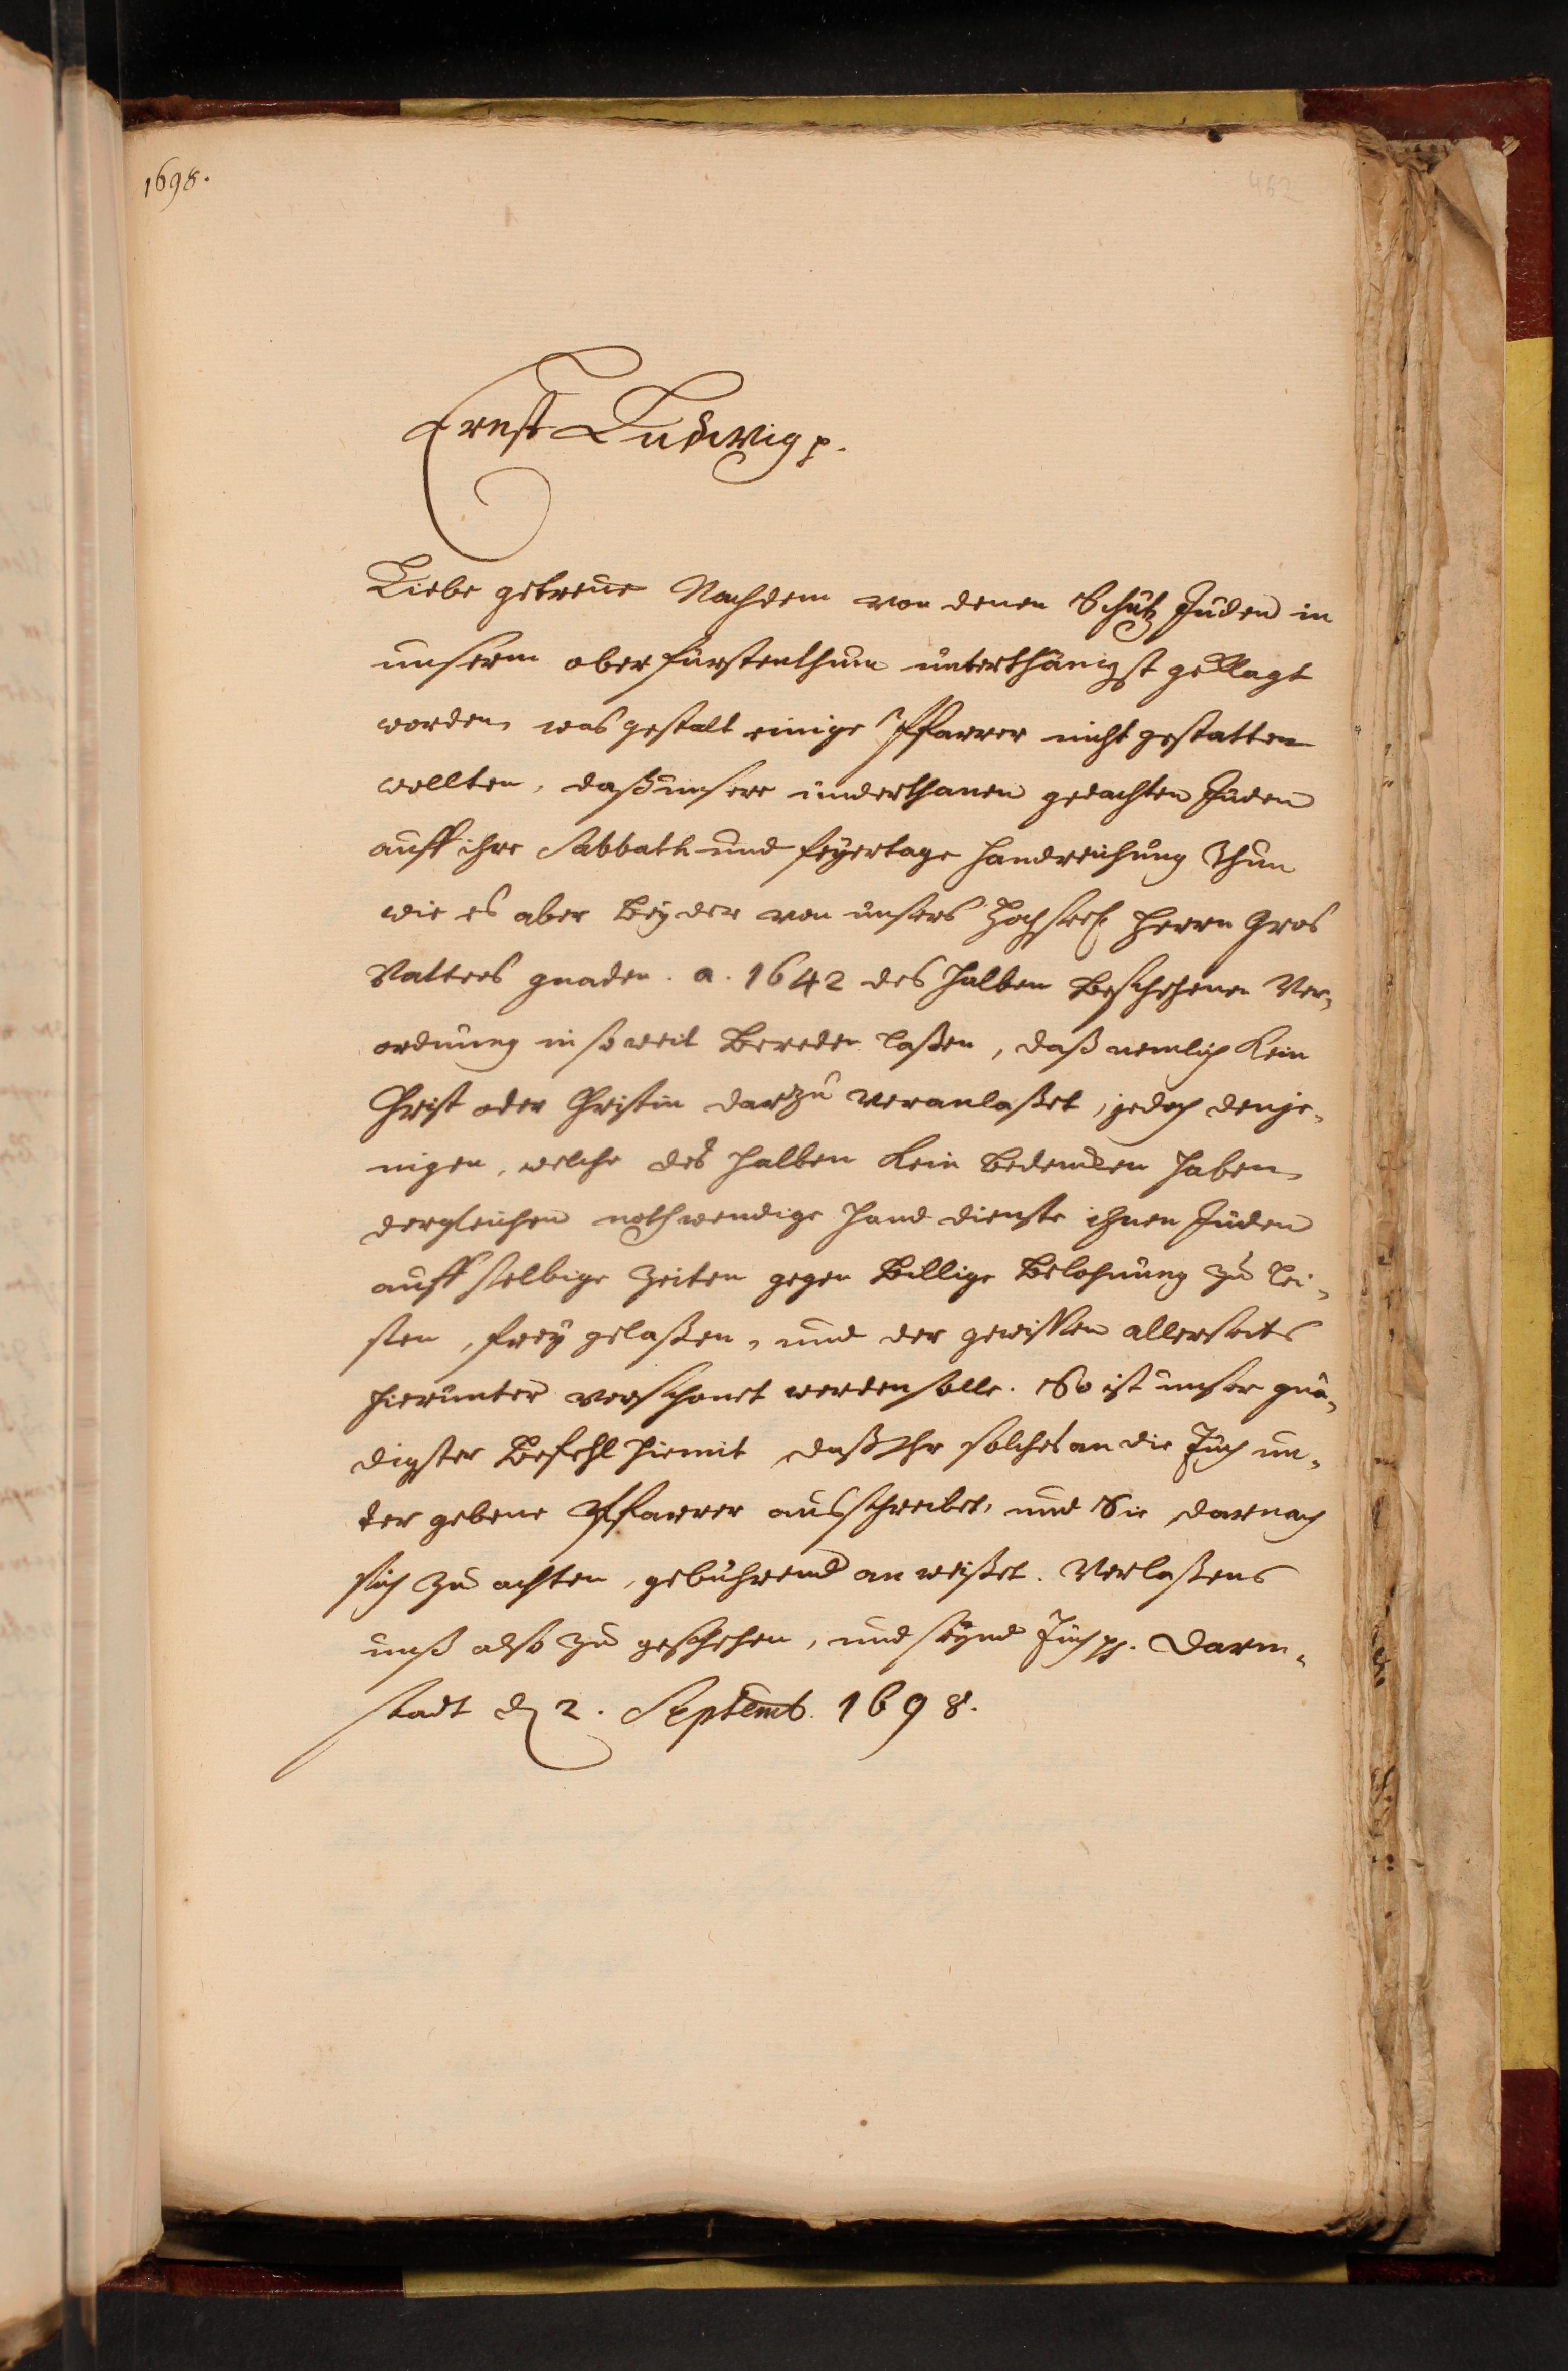 1698.
462
Ernst Ludwig p.
Liebe getreue Nachdem von denen Schutz Juden in
unserm ober fürstenthum unterthänigst geklagt
worden, was gestalt einige Pfarrer nicht gestatten
wollten, daß unsere underthanen gedachten Juden
auff ihre Sabbath und feyertage handreichung thun
wie es aber bey der von unsers Hochseel. Herrn Gros
Vatters gnaden. a. 1642 des halben beschehenen Ver„
ordnung in so weit laßen, daß nemlich kein
Christ oder Christin darzu veranlaßet, jedoch denje„
nigen, welche des halben kein bedencken haben,
dergleichen nothwendige hand dienste ihnen Juden
auff selbige Zeiten gegen billige belohnung zu lei„
sten, frey gelaßen, und der gewissen allerseits
hierunter verschonet werden solle. So ist unser gnä„
digster Befehl hiemit, daß Ihr solches an die Euch un„
ter gebene Pfarrer ausschreibet, und Sie darnach
sich zu achten, gebührend an weißet. Verlaßens
unß also zu geschehen, und seynd Euch pp. Darm„
stadt d 2. Septemb. 1698.